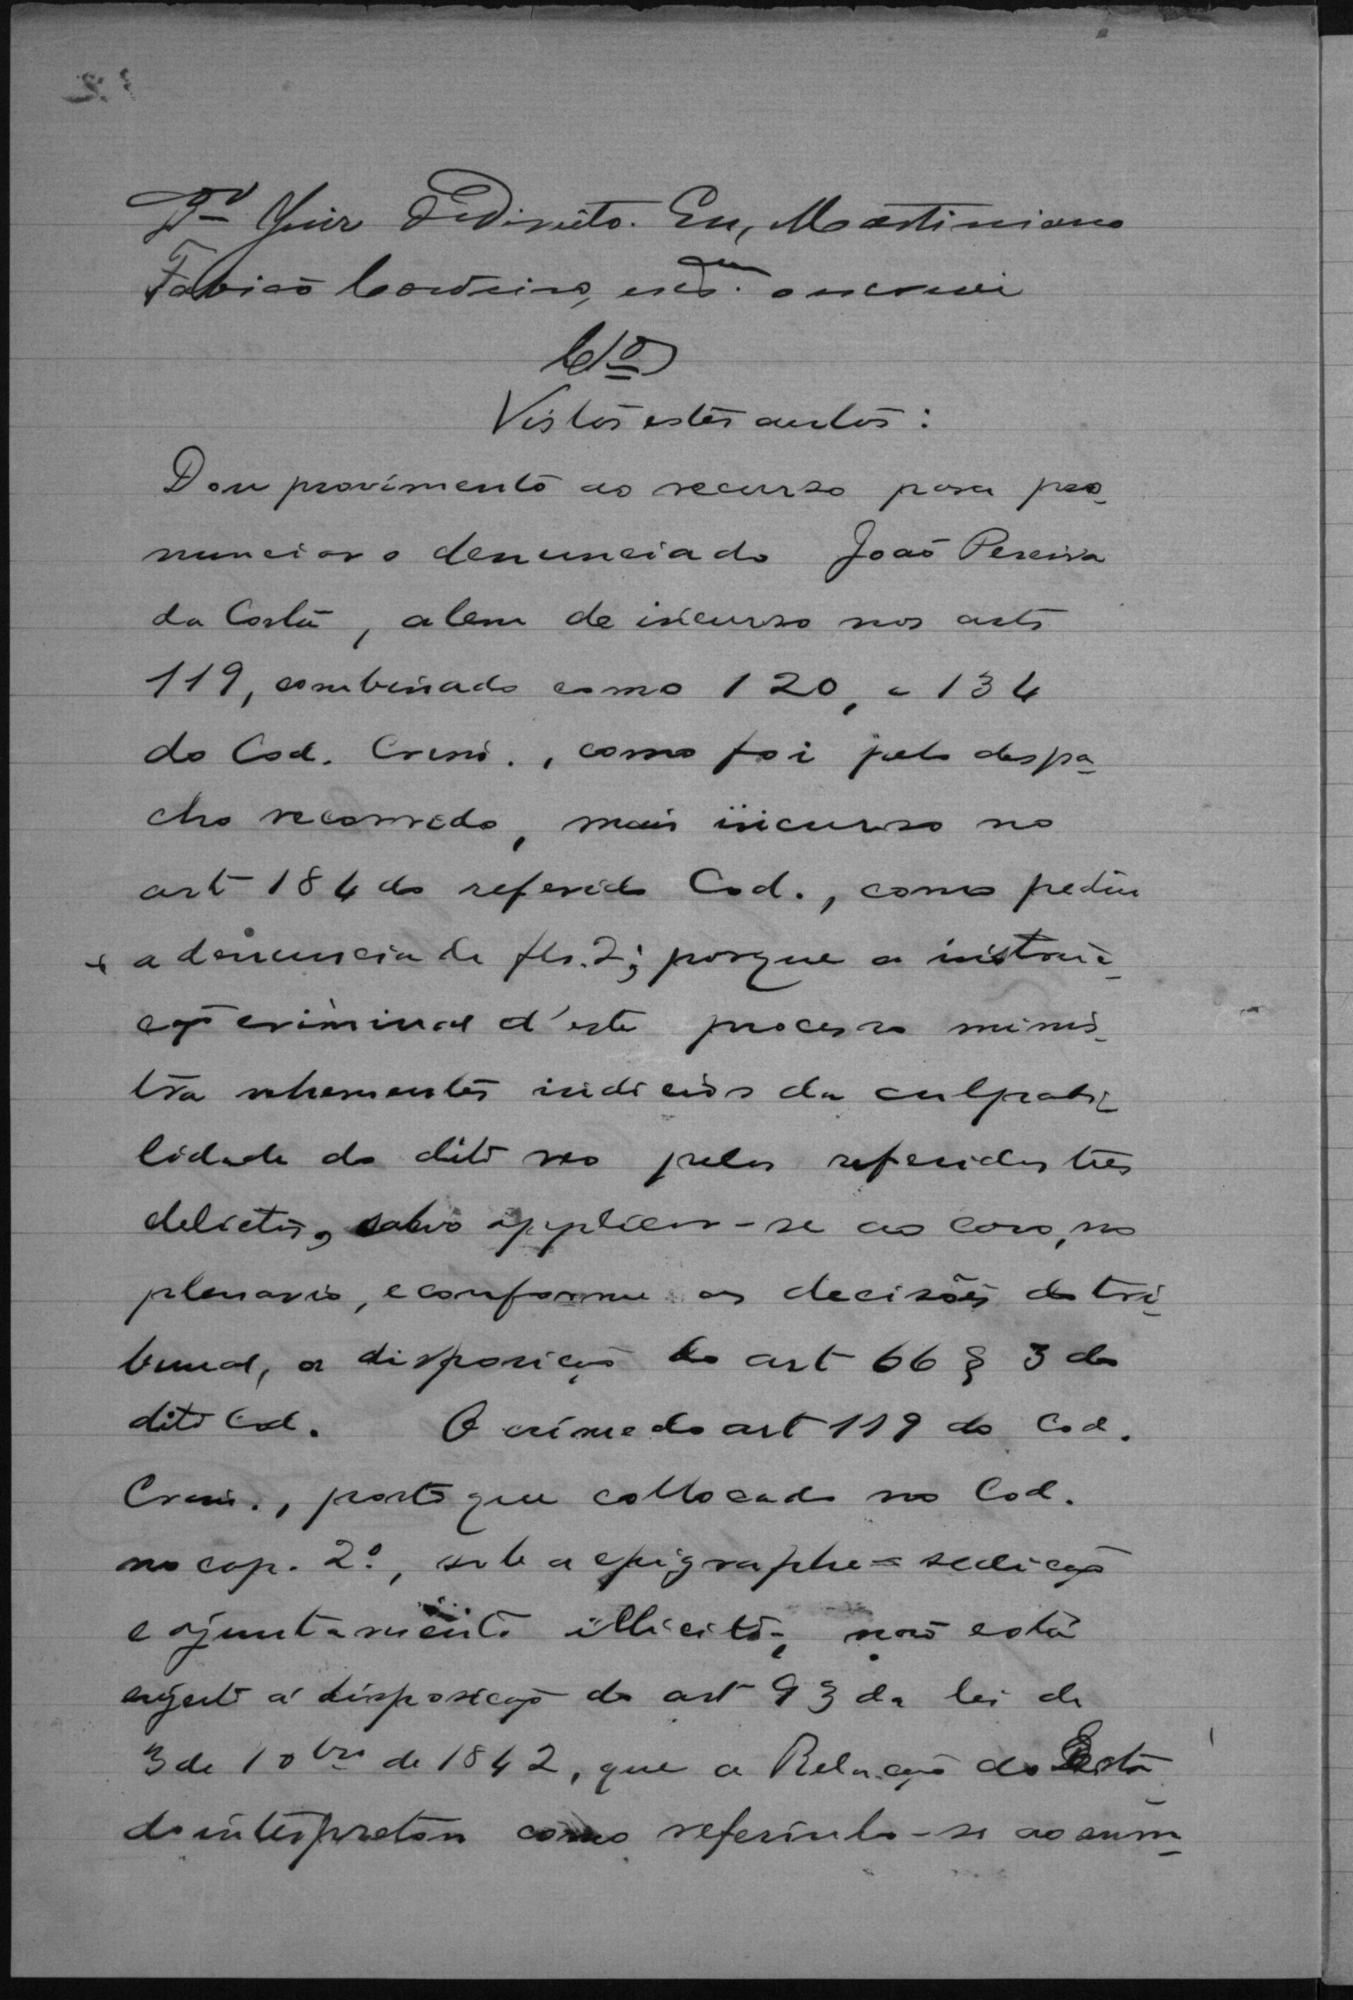 Dr Juiz de Direito. Eu, Martiniano
Fabião Cordeiro, escam. o escrevi
Clo
Vistos estes autos:
Dou provimento ao recurso para pro-
nunciar o denunciado João Pereira
da Costa, alem de incurso nos arts
119, combinado como 120, e 134
do Cod. Crim., como foi pelo despa-
cho recorrido, mais incurso no
art 184 do referido Cod., como pediu
a denuncia de fls. 2; porque a instruc-
ção criminal d'este processo minis-
tra vehementes indicios da culpabi-
lidade do dito reo pelos referidos tres
delictos, salvo applicar-se ao caso, no
plenario, e conforme as decisões do tri-
bunal, a disposição do art 66 § 3 do
dito Cod. O crime do art 119 do Cod.
Crim., posto que collocado no Cod.
no cap. 2º, sob a epigraphe = sedição
e ajuntamento illicito =, não está
sujeito á disposição do art 93 da lei de
3 de 10bro de 1842, que a Relação do Esta-
do interpretou como referindo-se ao sum-